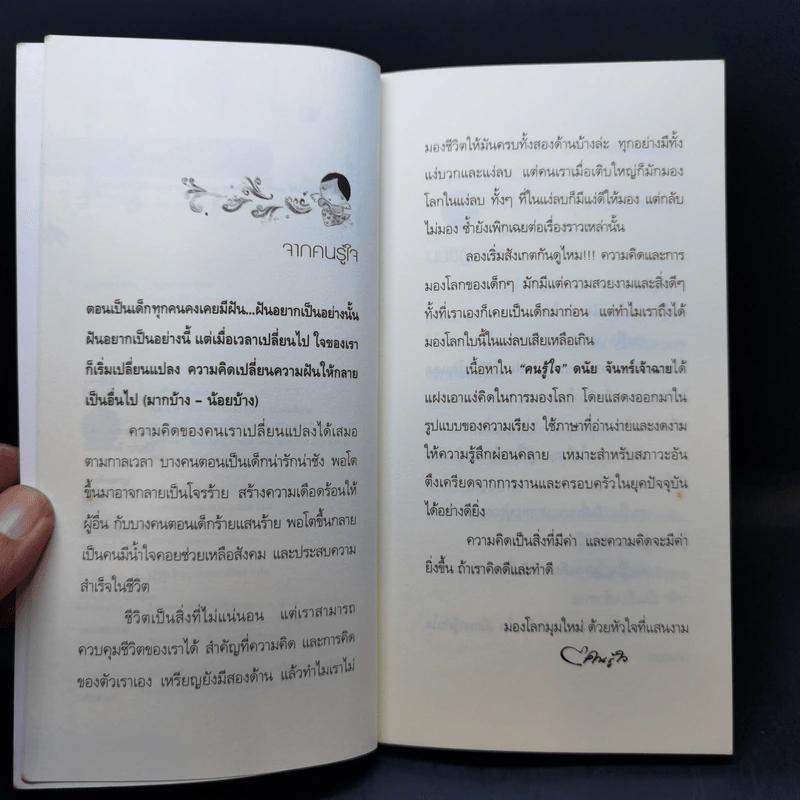 จากคนรู้ใจ
ตอนเป็นเด็กทุกคนคงเคยมีฝัน...ฝันอยากเป็นอย่างนั้น
ฝันอยากเป็นอย่างนี้ แต่เมื่อเวลาเปลี่ยนไป ใจของเรา
ก็เริ่มเปลี่ยนแปลง ความคิดเปลี่ยนความฝันให้กลาย
เป็นอื่นไป (มากบ้าง – น้อยบ้าง)
ความคิดของคนเราเปลี่ยนแปลงได้เสมอ
ตามกาลเวลา บางคนตอนเป็นเด็กน่ารักน่าชัง พอโต
ขึ้นมาอาจกลายเป็นโจรร้าย สร้างความเดือดร้อนให้
ผู้อื่น กับบางคนตอนเด็กร้ายแสนร้าย พอโตขึ้นกลาย
เป็นคนมีน้ำใจคอยช่วยเหลือสังคม และประสบความ
สำเร็จในชีวิต
ชีวิตเป็นสิ่งที่ไม่แน่นอน แต่เราสามารถ
ควบคุมชีวิตของเราได้ สำคัญที่ความคิด และการคิด
ของตัวเราเอง เหรียญยังมีสองด้าน แล้วทำไมเราไม่
มองชีวิตให้มันครบทั้งสองด้านบ้างล่ะ ทุกอย่างมีทั้ง
แง่บวกและแง่ลบ แต่คนเราเมื่อเติบใหญ่ก็มักมอง
โลกในแง่ลบ ทั้งๆ ที่ในแง่ลบก็มีแง่ดีให้มอง แต่กลับ
ไม่มอง ซ้ำยังเพิกเฉยต่อเรื่องราวเหล่านั้น
ลองเริ่มสังเกตกันดูไหม!!! ความคิดและการ
มองโลกของเด็กๆ มักมีแต่ความสวยงามและสิ่งดีๆ
ทั้งที่เราเองก็เคยเป็นเด็กมาก่อน แต่ทำไมเราถึงได้
มองโลกใบนี้ในแง่ลบเสียเหลือเกิน
เนื้อหาใน “คนรู้ใจ” ดนัย จันทร์เจ้าฉายได้
แฝงเอาแง่คิดในการมองโลก โดยแสดงออกมาใน
รูปแบบของความเรียง ใช้ภาษาที่อ่านง่ายและงดงาม
ให้ความรู้สึกผ่อนคลาย เหมาะสำหรับสภาวะอัน
ตึงเครียดจากการงานและครอบครัวในยุคปัจจุบัน
ได้อย่างดียิ่ง
ความคิดเป็นสิ่งที่มีค่า และความคิดจะมีค่า
ยิ่งขึ้น ถ้าเราคิดดีและทำดี
มองโลกมุมใหม่ ด้วยหัวใจที่แสนงาม
คนรู้ใจ